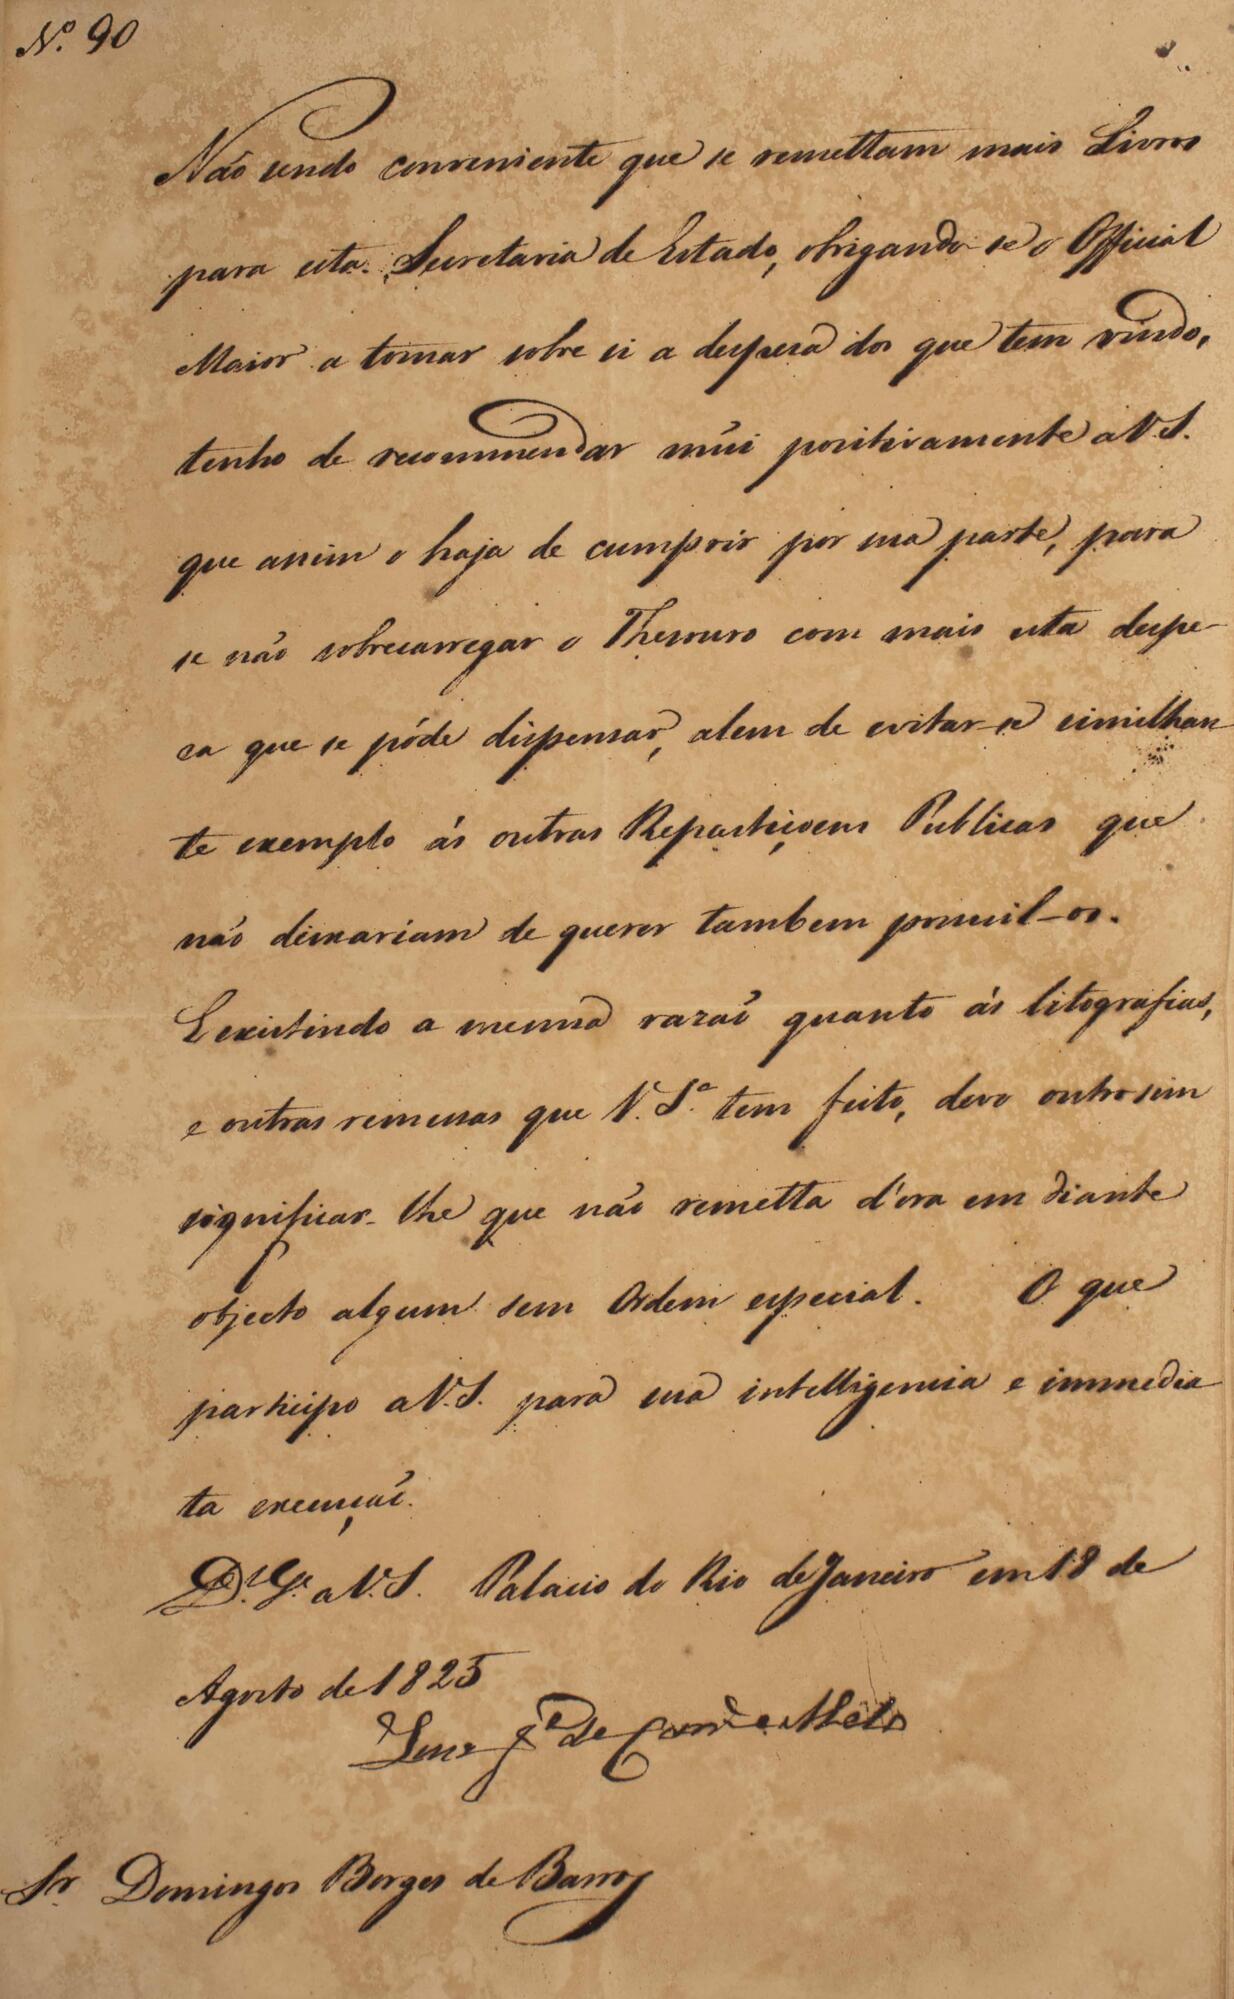 Nº. 90
Não sendo conveniente que se remettam mais Livros
para esta Secretaria de Estado, obrigando-se o Official
Maior a tomar sobre si a despesa dos que tem vindo,
tenho de recommendar mũi positivamente a V. S.
que assim o haja de cumprir por sua parte, para
se não sobrecarregar o Thesouro com mais esta despe-
sa que se póde dispensar, alem de evitar-se similhan-
te exemplo ás outras Repartiçoens Publicas que
não deixariam de querer tambem possuil-os.
E existindo a mesma razaõ quanto ás litografias,
e outras remessas que V. S.ª tem feito, devo outrosim
significar-lhe que não remetta d'ora em diante
objecto algum sem Ordem especial. O que
participo a V. S. para sua intelligencia e immedia-
ta execuçaõ.
D.s G.e a V. S. Palacio do Rio de Janeiro em 18 de
Agosto de 1825
Luiz J.e de Carv.o e Mello
Sr. Domingos Borges de Barros